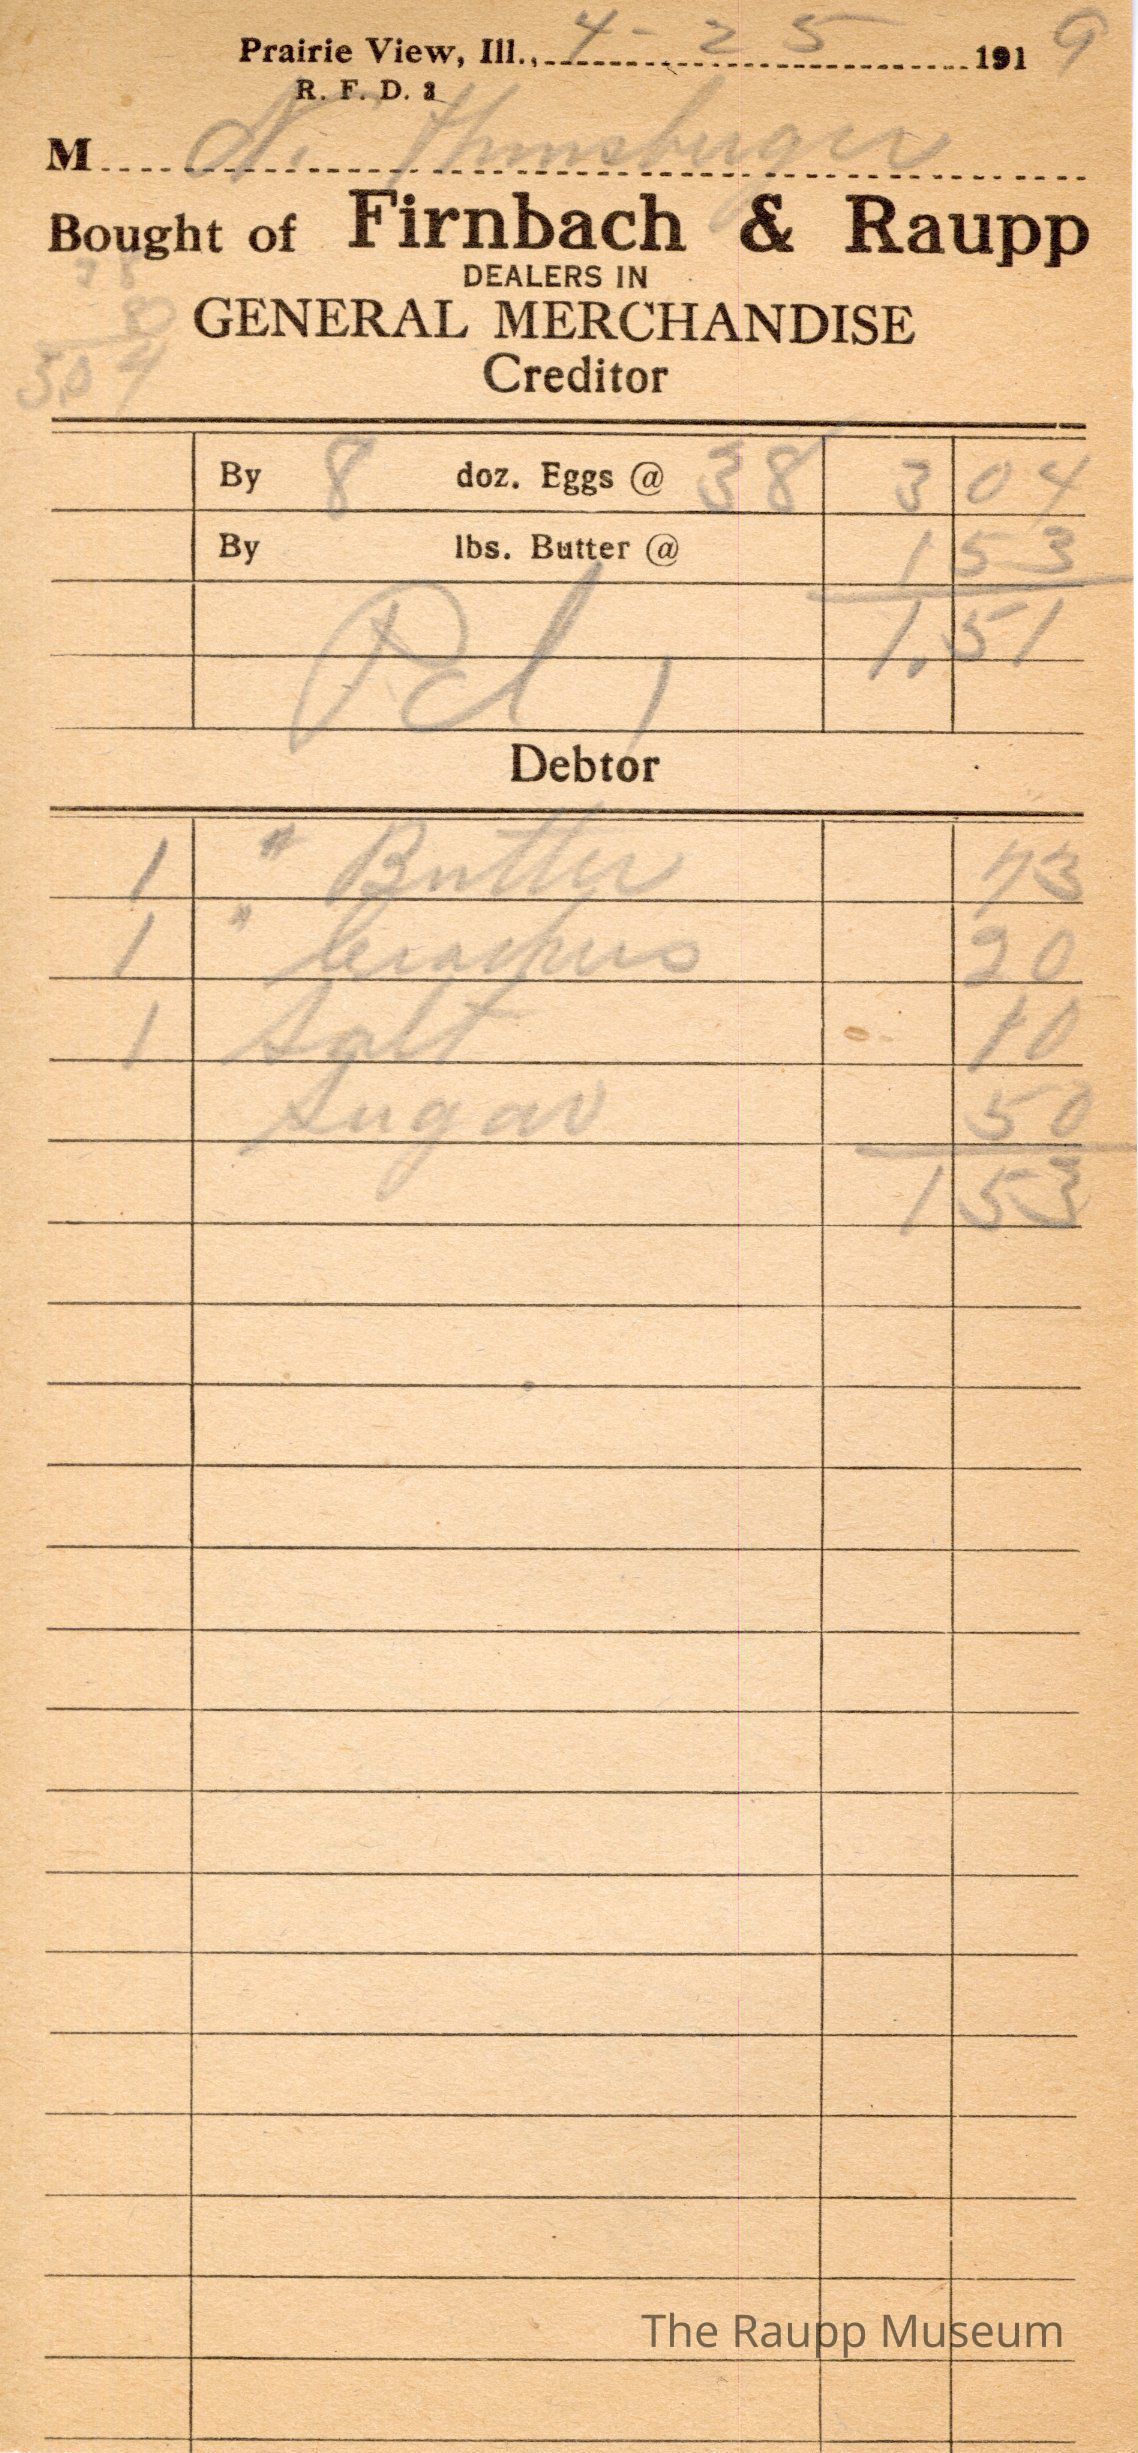 Prairie View, Ill., 4-25 1919
R. F. D. 2
M N.
Bought of Firnbach & Raupp
DEALERS IN
GENERAL MERCHANDISE
Creditor
38
8
3.04
By 8 doz. Eggs @ 38 3 04
By lbs. Butter @ 1 53
1.51
Pd,
Debtor
1 " Butter 73
1 " Crackers 20
1 Salt 10
Sugar 50
1 53
The Raupp Museum